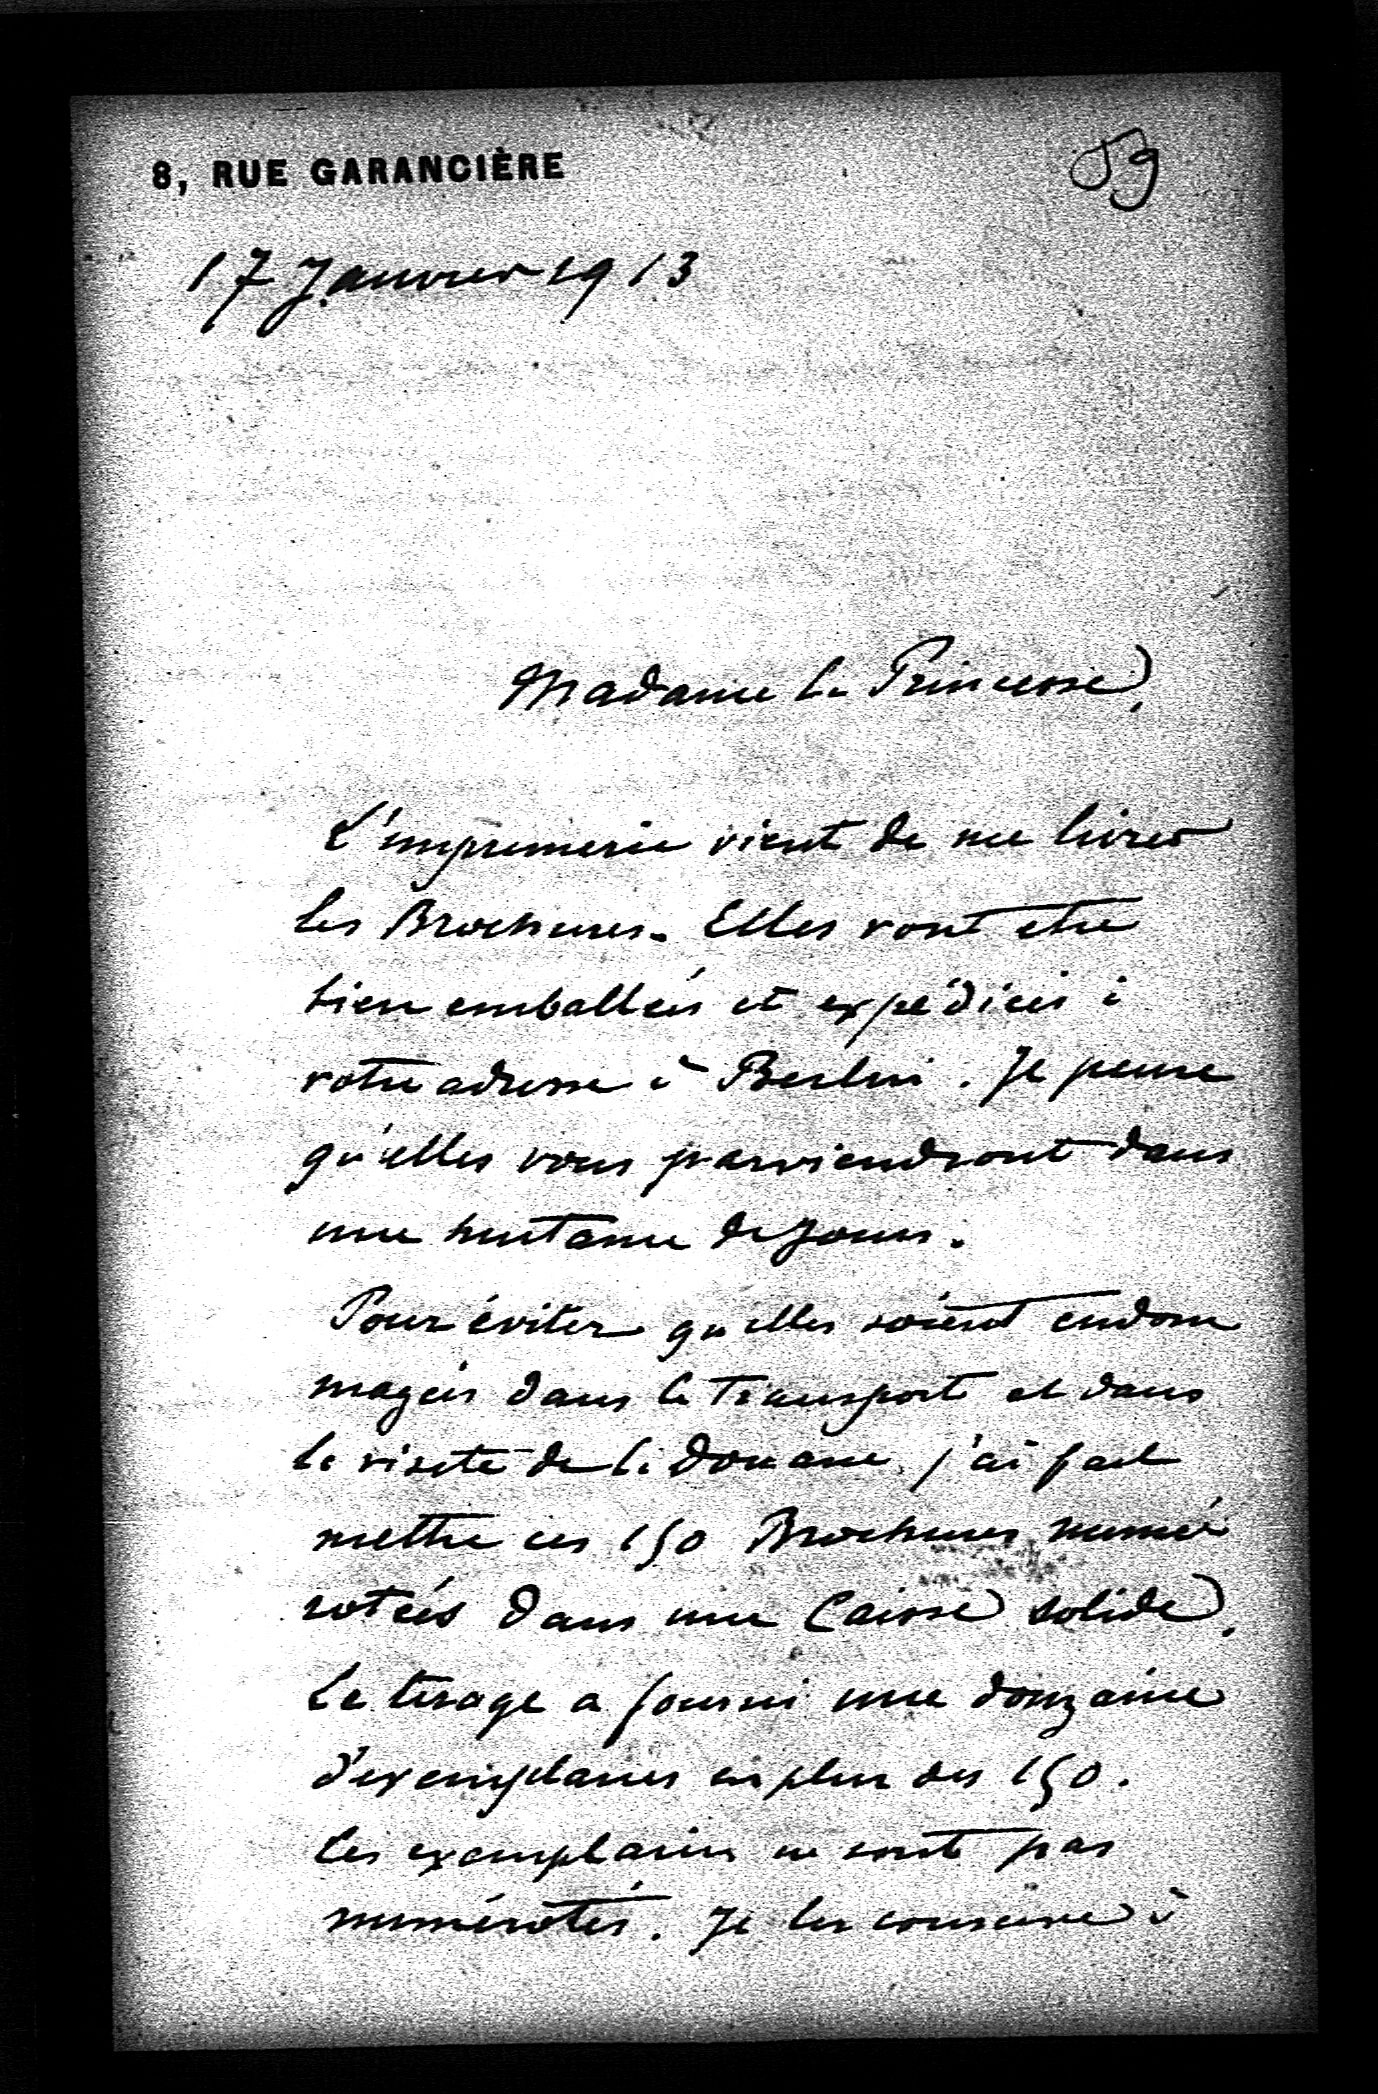 8, RUE GARANCIÈRE
59
17 Janvier 1913
Madame la Princesse,
L'imprimerie vient de me livrer
les Brochures. Elles vont etre
bien emballées et expédiées à
votre adresse à Berlin. Je pense
qu'elles vous parviendront dans
une huitaine de jours.
Pour éviter qu'elles soient endom
magées dans le transport et dans
la visite de la douane, j'ai fait
mettre ces 150 Brochures numé
rotées dans une Caisse solide.
Le tirage a fourni une douzaine
d'exemplaires en plus des 150.
Ces exemplaires ne sont pas
numérotés. Je les conserve à